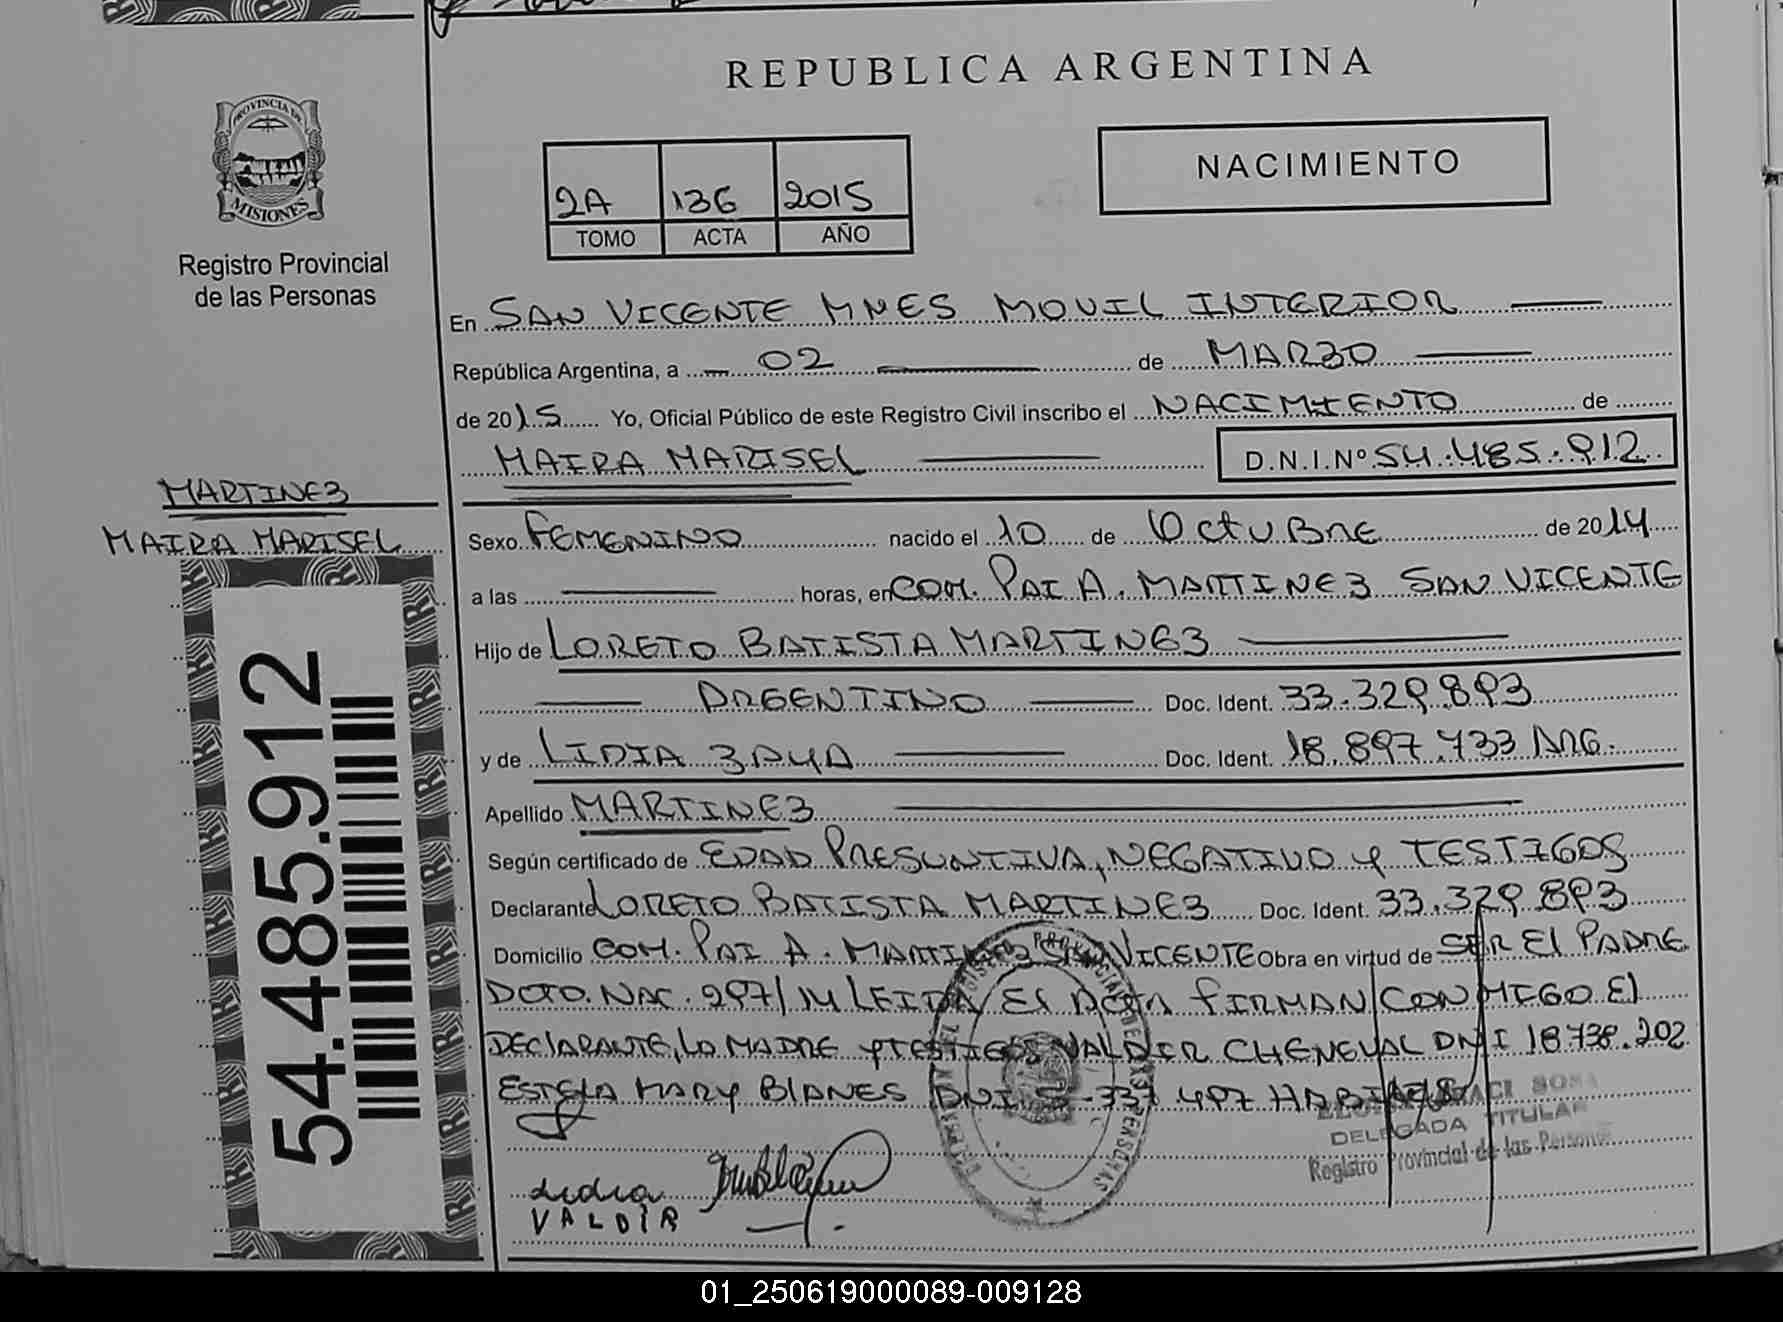 REPUBLICA ARGENTINA
PROVINCIA DE
MISIONES
Registro Provincial
de las Personas
NACIMIENTO
2A 136 2015
TOMO ACTA AÑO
En SAN VICENTE MNES MOVIL INTERIOR
República Argentina, a 02 de MARZO
de 2015 Yo, Oficial Público de este Registro Civil inscribo el NACIMIENTO de
MAIRA MARISEL D.N.I.Nº 54.485.912
MARTINEZ
MAIRA MARISEL
54.485.912
Sexo FEMENINO nacido el 10 de OctuBRE de 2014
a las horas, en COM. PAI A. MARTINEZ SAN VICENTE
Hijo de LORETO BATISTA MARTINEZ
ARGENTINO Doc. Ident. 33.329.893
y de LIDIA ZAYA Doc. Ident. 18.897.733 ARG.
Apellido MARTINEZ
Según certificado de EDAD PRESUNTIVA, NEGATIVO y TESTIGOS
Declarante LORETO BATISTA MARTINEZ Doc. Ident. 33.329.893
Domicilio COM. PAI A. MARTINEZ SAN VICENTE Obra en virtud de SER El PADRE
DCTO. NAC. 297/14 LEIDA El ACTA FIRMAN CON MIGO El
DEClARANTE, LA MADRE y TESTIGOS VALDIR CHENEVAL DNI 18.738.202
ESTELA MARY BlANES DNI 337 497
DELEGADA TITULAR
Registro Provincial de las Personas
Lidia
VALDIR
01_250619000089-009128